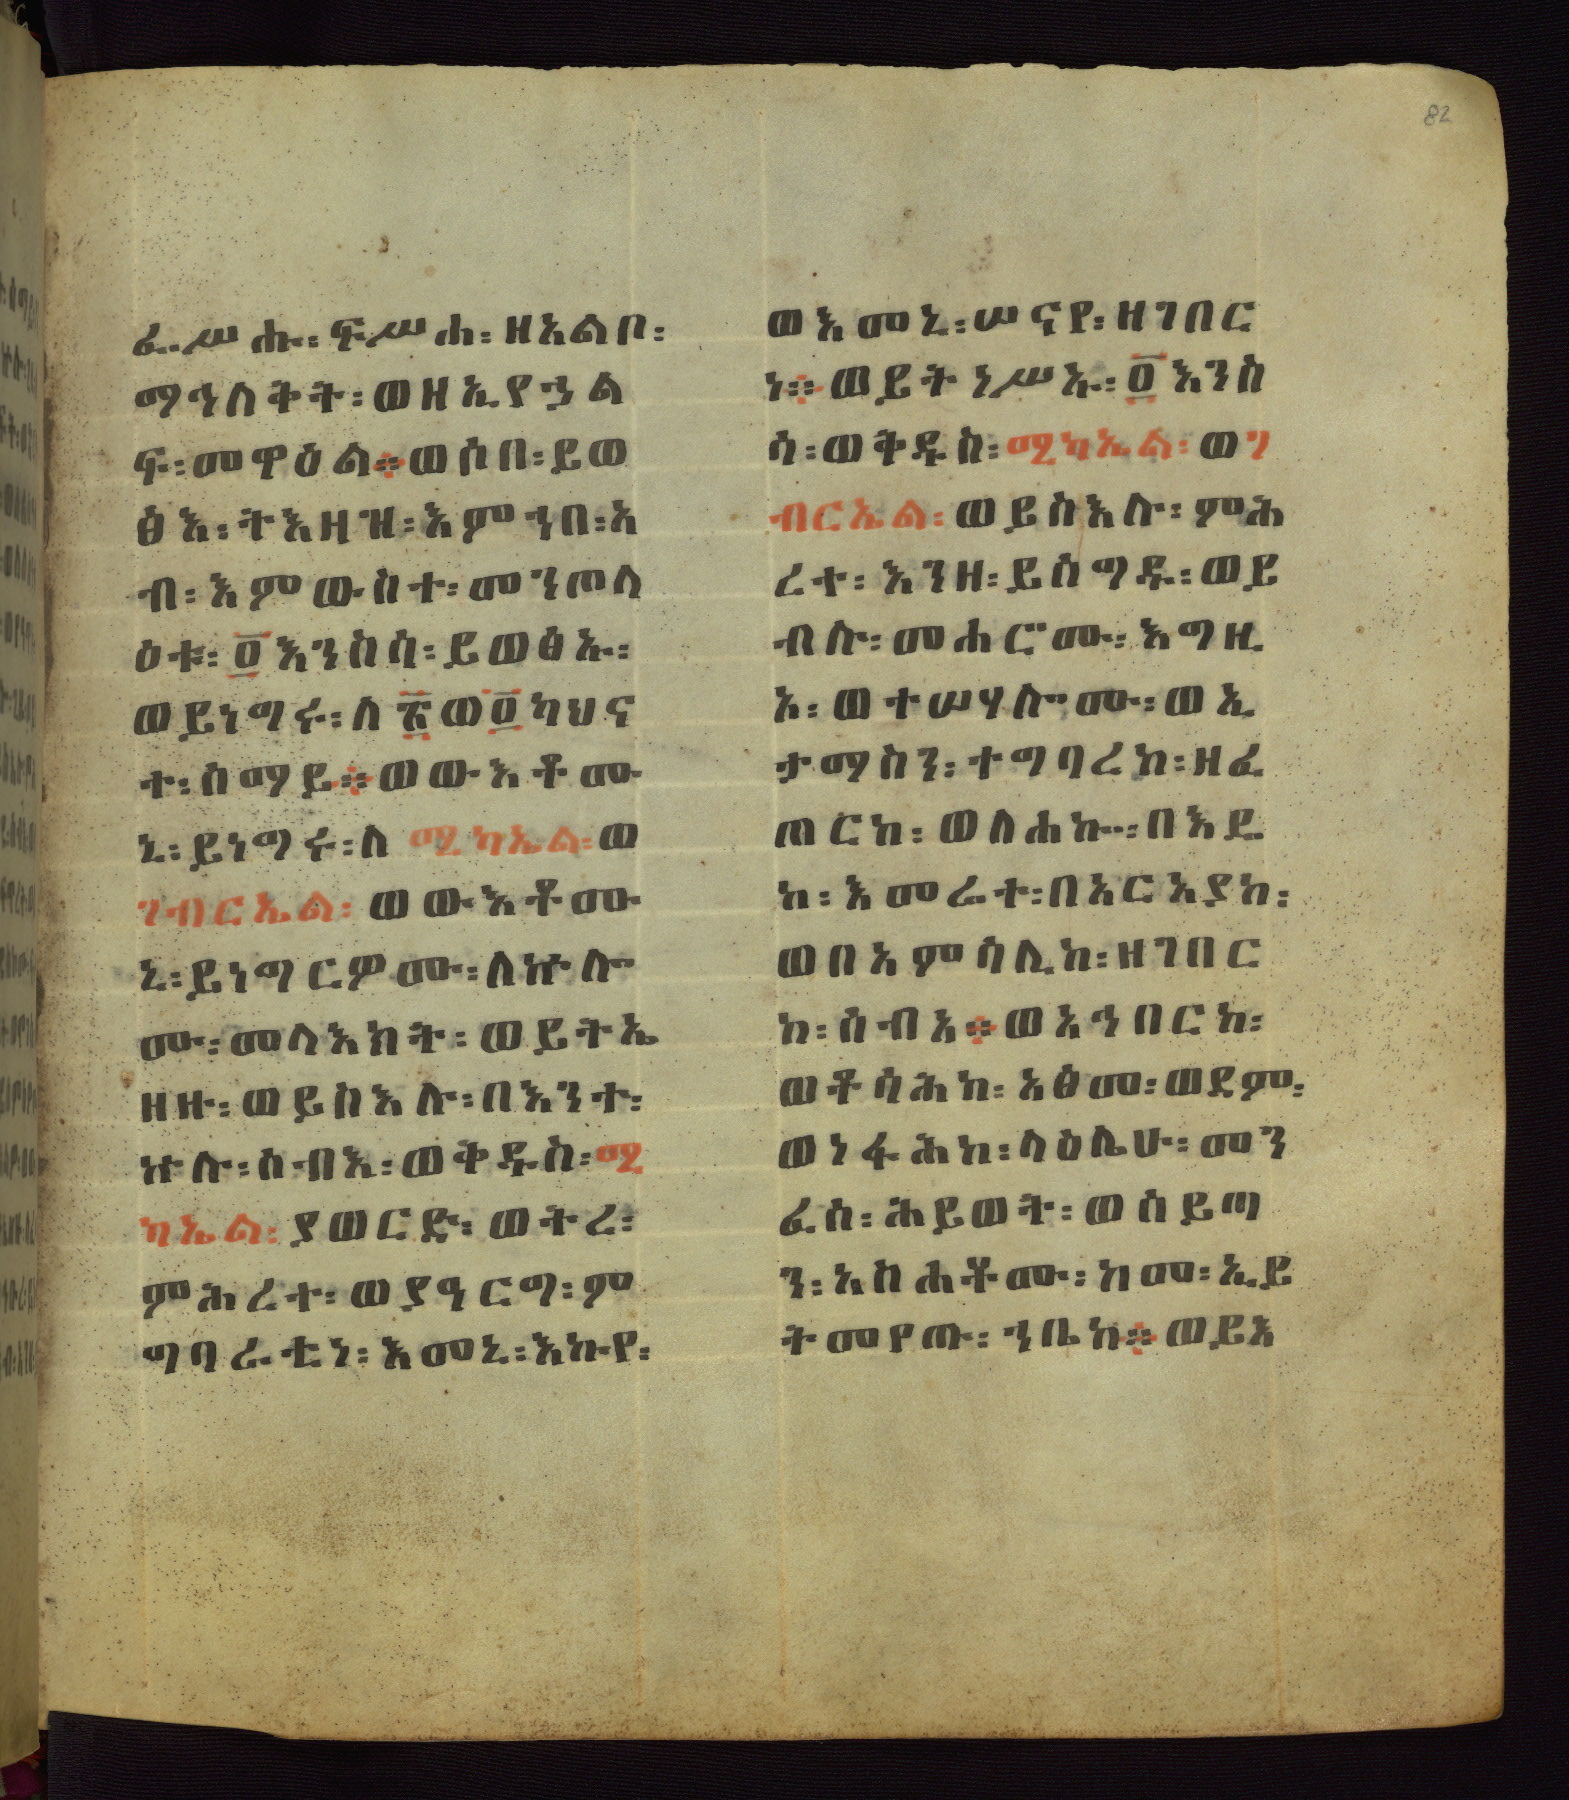 82
ፌሥሐ፡ ፍሥሐ፡ ዘአልቦ፡
ማኅለቅት፡ ወዘኢየኃል
ፍ፡ መዋዕል። ወሶበ፡ ይወ
ፅእ፡ ትእዛዝ፡ እምኀበ፡ አ
ብ፡ እምውስተ፡ መንጦላ
ዕቱ፡ ፬እንስሳ፡ ይወፅኡ፡
ወይነግሩ፡ ለ፳ወ፬ካህና
ተ፡ ሰማይ። ወውእቶሙ
ኒ፡ ይነግሩ፡ ለሚካኤል፡ ወ
ገብርኤል፡ ወውእቶሙ
ኒ፡ ይነግርዎሙ፡ ለኵሎ
ሙ፡ መላእክት፡ ወይትኤ
ዘዙ፡ ወይስእሉ፡ በእንተ፡
ኵሉ፡ ሰብእ፡ ወቅዱስ፡ ሚ
ካኤል፡ ያወርድ፡ ወትረ፡
ምሕረተ፡ ወያዓርግ፡ ም
ግባራቲነ፡ እመኒ፡ እኩየ፡
ወእመኒ፡ ሠናየ፡ ዘገበር
ነ። ወይትነሥኡ፡ ፬እንስ
ሳ፡ ወቅዱስ፡ ሚካኤል፡ ወገ
ብርኤል፡ ወይስእሉ፡ ምሕ
ረተ፡ እንዘ፡ ይሰግዱ፡ ወይ
ብሉ፡ መሐርሙ፡ እግዚ
እ፡ ወተሠሃሎሙ፡ ወኢ
ታማስን፡ ተግባረከ፡ ዘፈ
ጠርከ፡ ወለሐኰ፡ በእዴ
ከ፡ እመሬተ፡ በአርአያከ፡
ወበአምሳሊከ፡ ዘገበር
ከ፡ ሰብአ። ወአኅበርከ፡
ወቶሳሕከ፡ አፅመ፡ ወደም፡
ወነፋሕከ፡ ላዕሌሁ፡ መን
ፈሰ፡ ሕይወት፡ ወሰይጣ
ን፡ አስሐቶሙ፡ ከመ፡ ኢይ
ትመየጡ፡ ኀቤከ። ወይእ